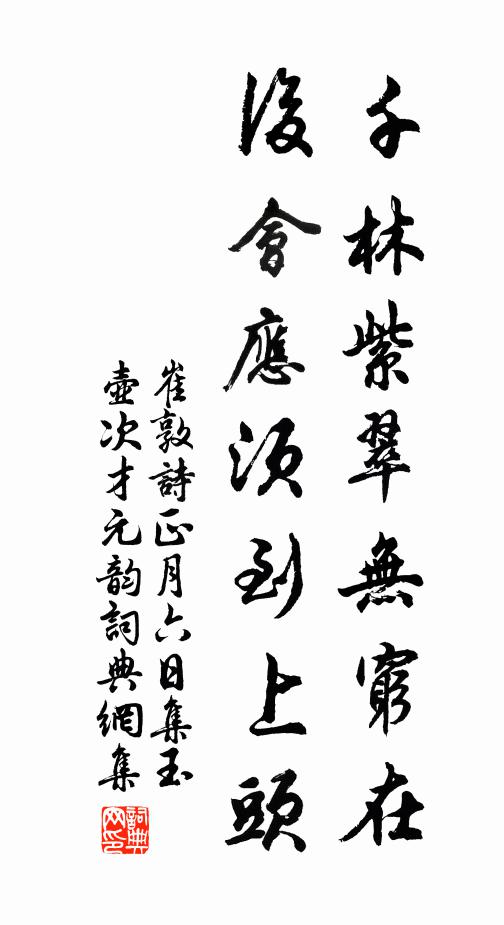 千林紫翠無窮在
後會應須到上頭
崔敦詩正月六日集玉
壺次才元韵詞典網集
詞典网印